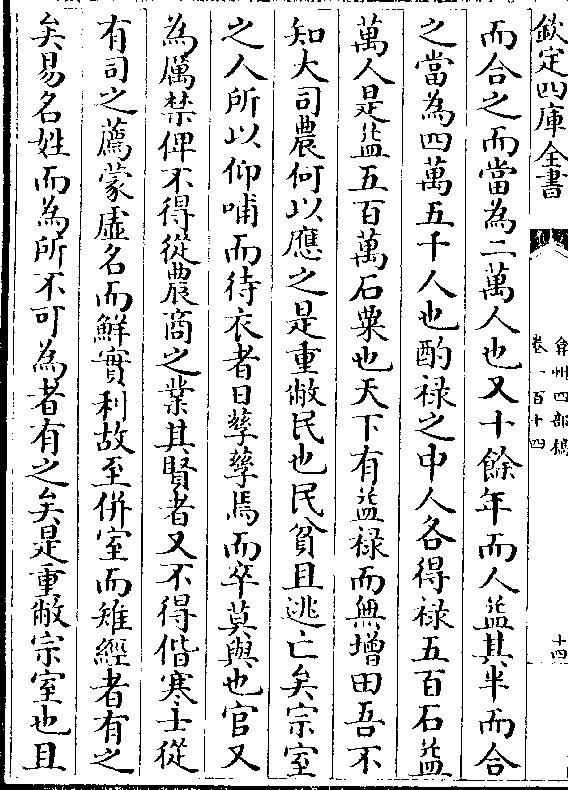 欽定四庫全書
弇州四部稿
卷一百十四
十四
而合之而當為二萬人也又十餘年而人益其半而合
之當為四萬五千人也酌禄之中人各得禄五百石益
萬人是益五百萬石粟也天下有益禄而無增田吾不
知大司農何以應之是重敝民也民貧且逃亡矣宗室
之人所以仰哺而待衣者日孳孳焉而卒莫與也官又
為厲禁俾不得從農商之業其賢者又不得偕寒士從
有司之薦蒙虚名而鮮實利故至併室而雉經者有之
矣易名姓而為所不可為者有之矣是重敝宗室也且